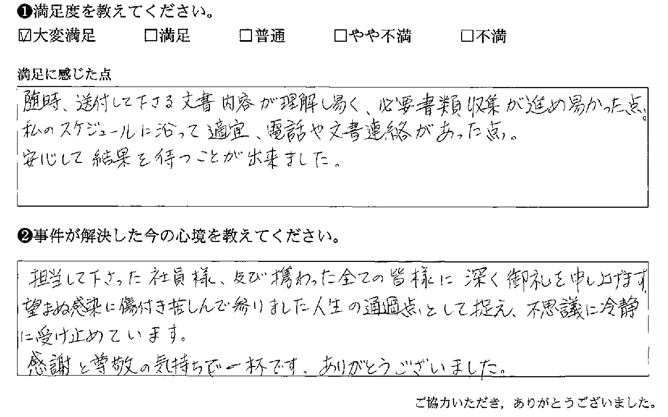 ❶満足度を教えてください。
☑大変満足 □満足 □普通 □やや不満 □不満
満足に感じた点
随時、送付して下さる文書内容が理解し易く、必要書類収集が進め易かった点。
私のスケジュールに沿って適宜、電話や文書連絡があった点。
安心して結果を待つことが出来ました。
❷事件が解決した今の心境を教えてください。
担当して下さった社員様、及び携わった全ての皆様に深く御礼を申し上げます。
望まぬ感染に傷付き苦しんで参りました人生の通過点として捉え、不思議に冷静
に受け止めています。
感謝と尊敬の気持ちで一杯です。ありがとうございました。
ご協力いただき，ありがとうございました。